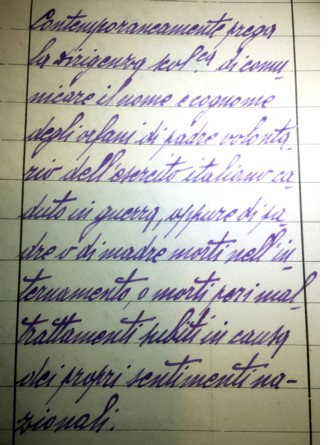 Contemporaneamente prega
la Dirigenza scol.ca di comu-
nicare il nome e cognome
degli orfani di padre volonta-
rio dell'esercito italiano ca-
duto in guerra, oppure di pa-
dre o di madre morti nell'in-
ternamento, o morti per i mal-
trattamenti subiti in causa
dei propri sentimenti na-
zionali.